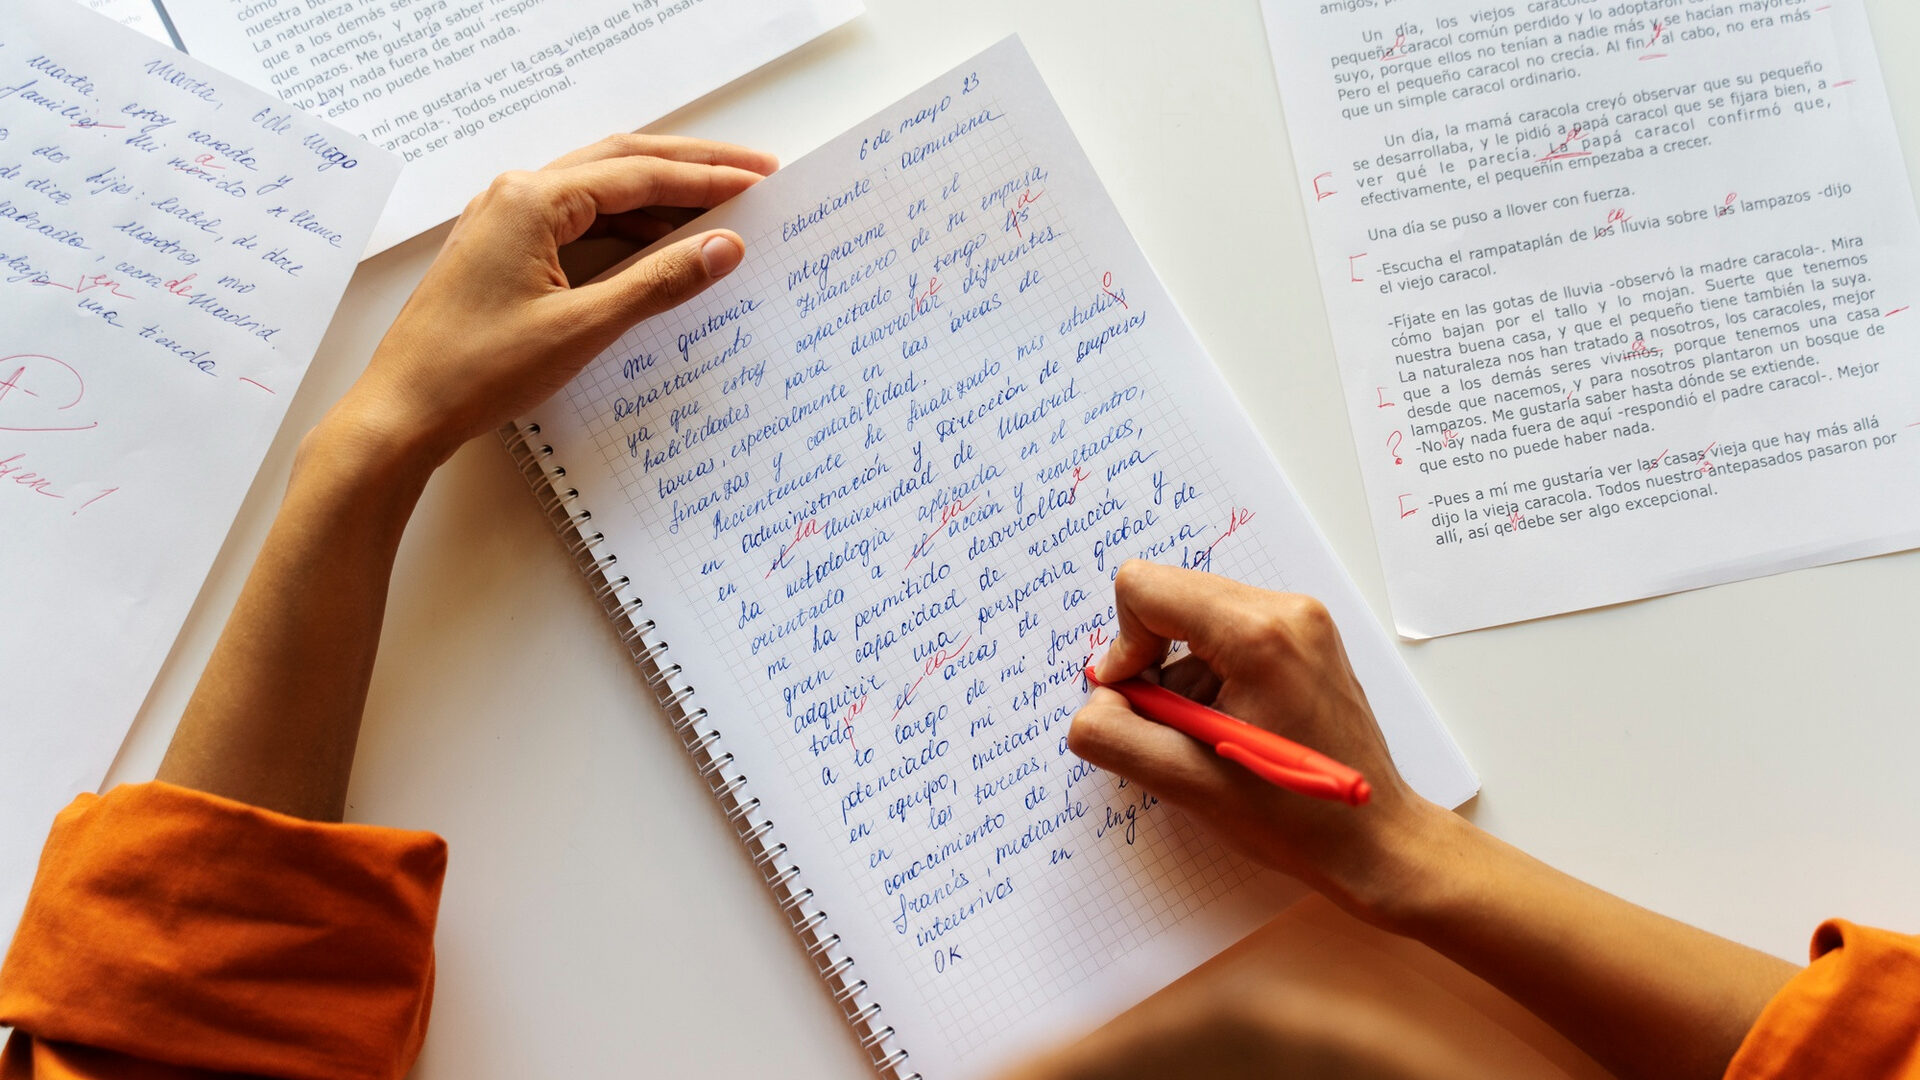 cómo
nuestra bu
La naturaleza n
que a los demás sere
que nacemos, y para
lampazos. Me gustaría saber ha
No hay nada fuera de aquí -respon
esto no puede haber nada.
a mí me gustaría ver la casa vieja que hay
aracola-. Todos nuestros antepasados pasaro
be ser algo excepcional.
Marta, 6 de mayo
Marta. estoy casada y
familia. Mi merido se llama
a
dos hijos: Isabel, de doce
de diez. Nosotros vivo
, cerca de Madrid.
en
una tienda
A-
6 de mayo 23
Estudiante: Almudena
Me gustaria integrarme en el
Departamento Financiero de su empresa,
ya que estoy capacitado y tengo los
a
habilidades para desarrollar diferentes
e
tareas, especialmente en las áreas de
finanzas y contabilidad.
Recientemente he finalizado mis estudios
o
en administración y Dirección de Empresas
en el Universidad de Madrid.
la
La metodología aplicada en el centro,
orientada a el acción y resultados,
la
me ha permitido desarrollar una
r
gran capacidad de resolución y
adquirir una perspectiva global de
todo el areas de la empresa.
as
la
a lo largo de mi formac hay
he
potenciado mi espirit
u
en equipo, iniciativa
en las tareas, a
conocimiento de idi
francés, mediante e
intensivos en Ingl
OK
amigos, p
Un día, los viejos caracoles
pequeña caracol común perdido y lo adoptaron co
o
suyo, porque ellos no tenían a nadie más y se hacían mayores.
Pero el pequeño caracol no crecía. Al fin y al cabo, no era más
que un simple caracol ordinario.
Un día, la mamá caracola creyó observar que su pequeño
se desarrollaba, y le pidió a papá caracol que se fijara bien, a
ver qué le parecía. La papá caracol confirmó que,
efectivamente, el pequeñín empezaba a crecer.
Una día se puso a llover con fuerza.
-Escucha el rampataplán de los lluvia sobre las lampazos -dijo
la
el viejo caracol.
-Fíjate en las gotas de lluvia -observó la madre caracola-. Mira
cómo bajan por el tallo y lo mojan. Suerte que tenemos
nuestra buena casa, y que el pequeño tiene también la suya.
La naturaleza nos han tratado a nosotros, los caracoles, mejor
que a los demás seres vivimos, porque tenemos una casa
os
desde que nacemos, y para nosotros plantaron un bosque de
lampazos. Me gustaría saber hasta dónde se extiende.
?
-No ay nada fuera de aquí -respondió el padre caracol-. Mejor
que esto no puede haber nada.
-Pues a mí me gustaría ver las casas vieja que hay más allá
dijo la vieja caracola. Todos nuestro antepasados pasaron por
allí, así qe debe ser algo excepcional.